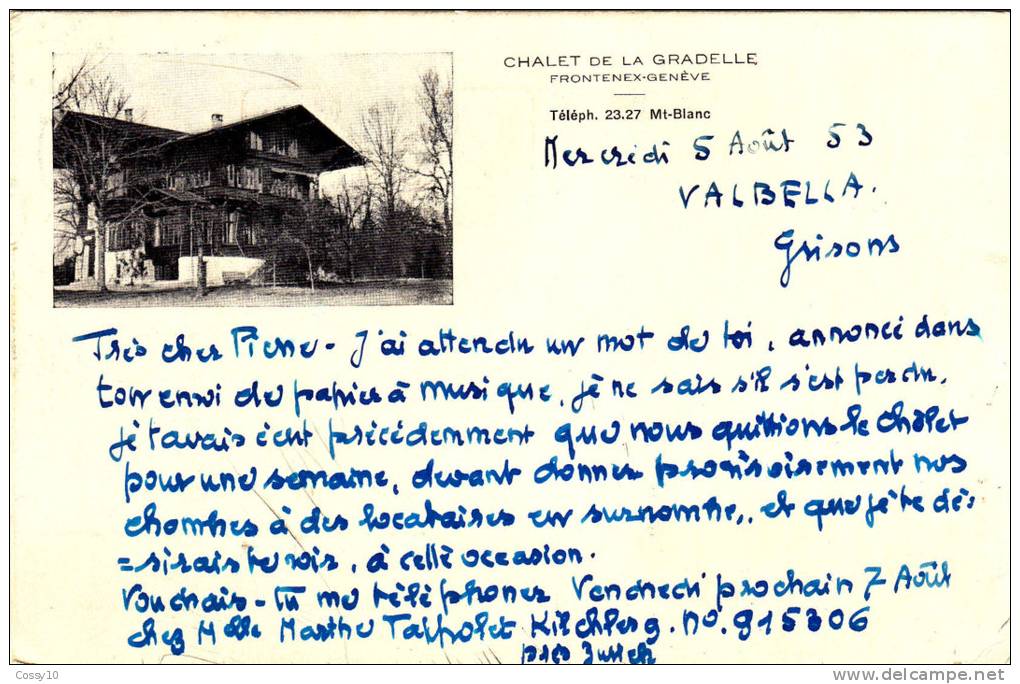 CHALET DE LA GRADELLE
FRONTENEX-GENÈVE
Téléph. 23.27 Mt-Blanc
Mercredi 5 Août 53
VALBELLA.
Grisons
Très cher Pierre - J'ai attendu un mot de toi, annoncé dans
ton envoi de papier à musique, je ne sais s'il s'est perdu.
Je t'avais écrit précédemment que nous quittions le châlet
pour une semaine, devant donner provisoirement nos
chambres à des locataires en surnombre, et que je te dé=
=sirais te voir, à cette occasion.
Voudrais-tu me téléphoner Vendredi prochain 7 Août
chez Melle Marthe Tappolet Kilchberg. no. 915306
près Zurich
Cossy10
www.delcampe.net